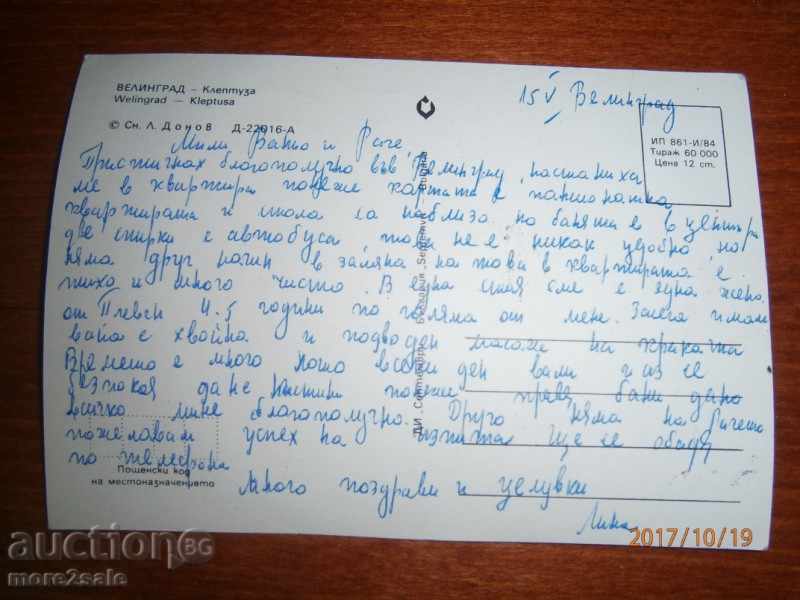 ВЕЛИНГРАД – Клептуза
Welingrad — Kleptusa
© Сн. Л. Донов Д-22016-А
15 V Велинград
ИП 861-И/84
Тираж 60 000
Цена 12 ст.
Мили Ваньо и
Пристигнах благополучно във Велинград, настаниха
ме в квартира понеже картата е
квартирата и стола са наблизо но банята е в центъра
две спирки с автобуса, това не е никак удобно но
няма друг начин в замяна на това в квартирата е
тихо и много чисто. В една стая сме с една жена
от Плевен 4-5 години по голяма от мене. Засега имам
вана с хвойна и подводен масаж на крачка
Времето е много лошо всеки ден вали и аз се
безпокоя да не настина понеже правя бани дано
всичко мине благополучно. Друго няма на
пожелавам успех на изпита. Ще се обадя
по телефона
Много поздрави и целувки
Лина
ДИ „Септември“ България „Septemvri“
Пощенски код
на местоназначението
2017/10/19
auctionBG
more2sale